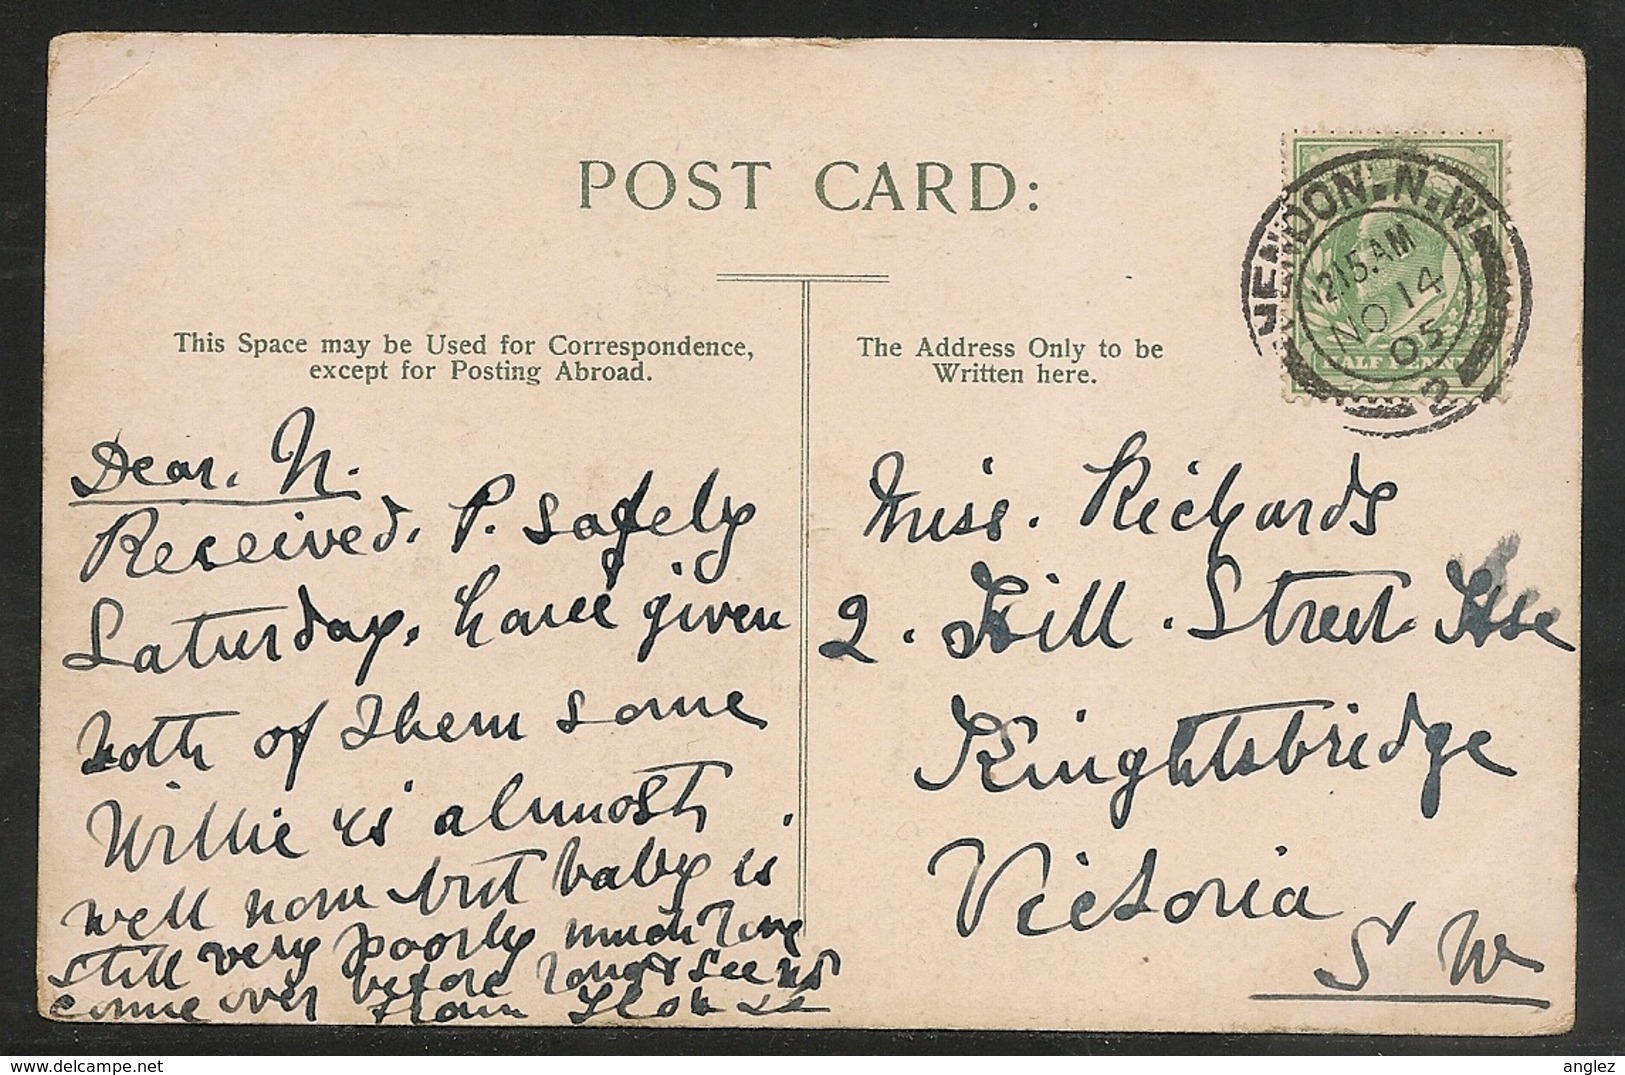 POST CARD:
This Space may be Used for Correspondence,
except for Posting Abroad.
The Address Only to be
Written here.
HENDON-N.W.
12.15.AM
NO 14
05
2
Dear. N.
Received. P. safely
Saturday. have given
both of them some
Willie is almost
well now but baby is
still very poorly much love
come over before long & see us
from
Miss. Richards
2. Hill. Street. Hse
Knightsbridge
Victoria
S W
anglez